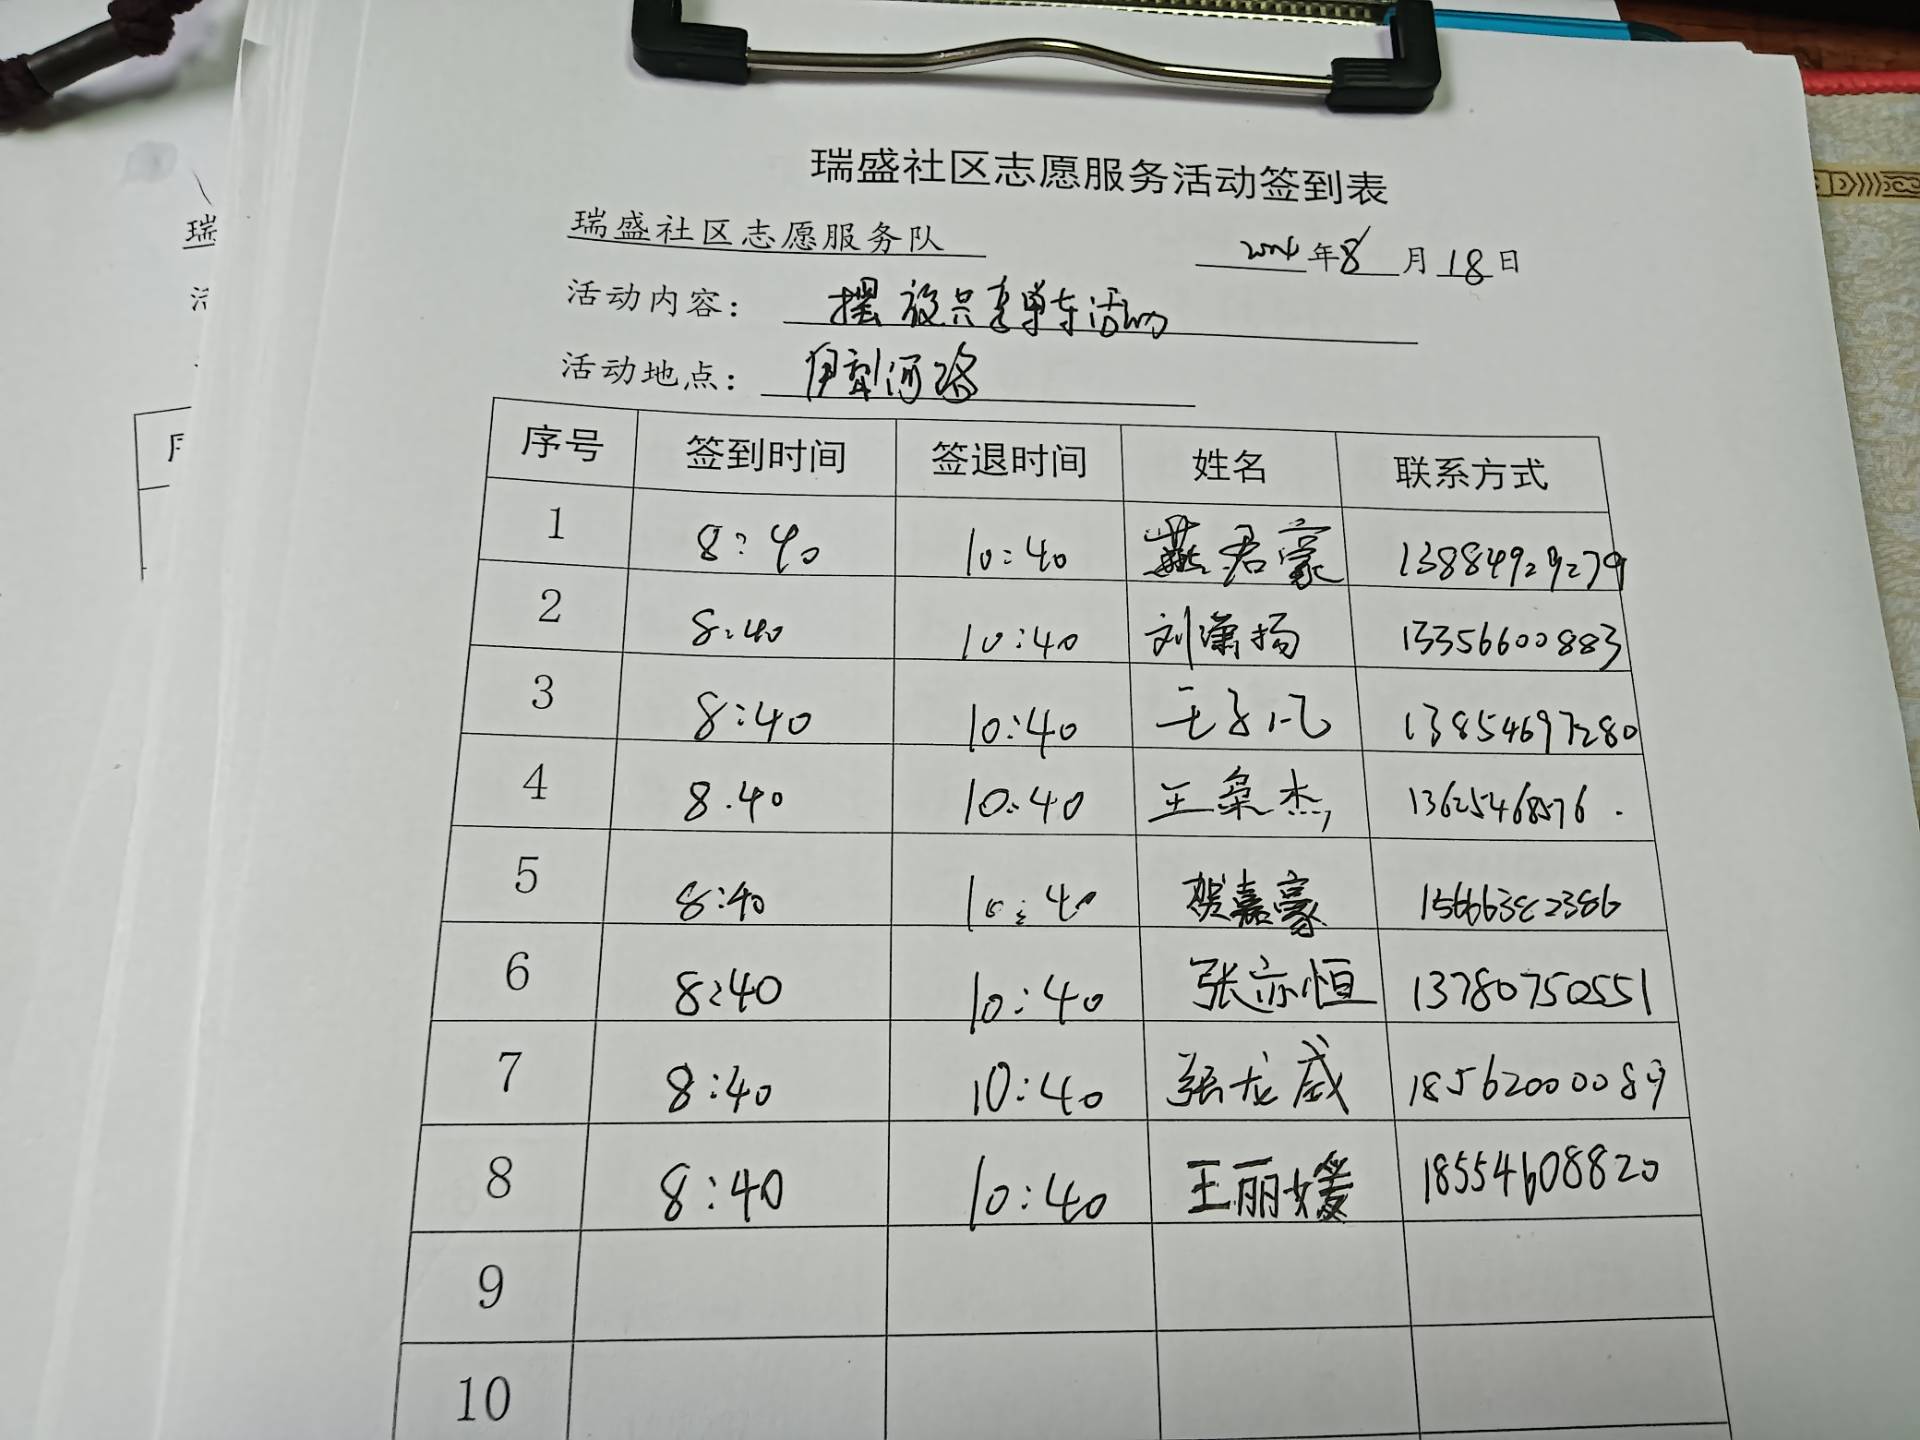 瑞盛社区志愿服务活动签到表
瑞盛社区志愿服务队 2024年8月18日
活动内容: 摆放共享单车活动
活动地点: 伊犁河路
序号 签到时间 签退时间 姓名 联系方式
1 8:40 10:40 燕君豪 13884929279
2 8:40 10:40 刘潇扬 13356600883
3 8:40 10:40 王子凡 13854697280
4 8.40 10:40 王枭杰 13625468576
5 8:40 10:40 贺嘉豪 15666382386
6 8:40 10:40 张亦恒 13780750551
7 8:40 10:40 张龙威 18562000089
8 8:40 10:40 王丽媛 18554608820
9
10
瑞